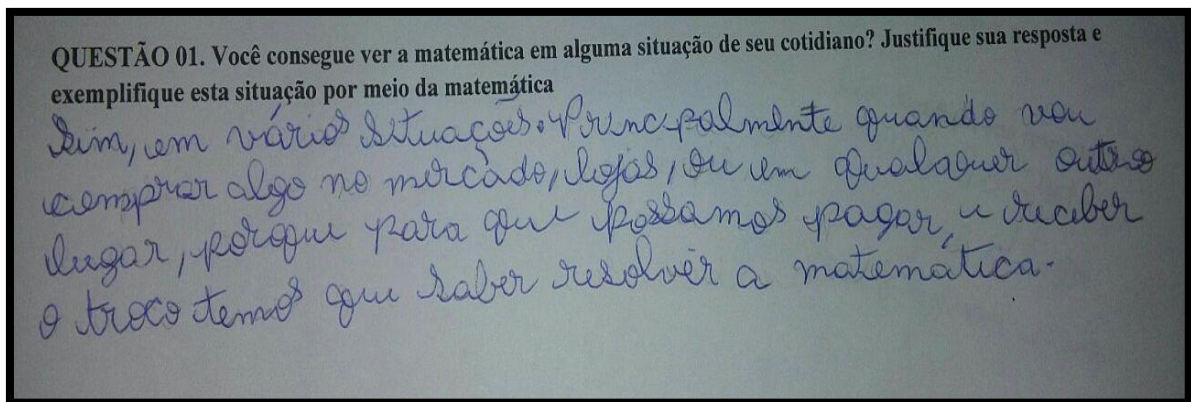 QUESTÃO 01. Você consegue ver a matemática em alguma situação de seu cotidiano? Justifique sua resposta e
exemplifique esta situação por meio da matemática
Sim, em vários situações. Principalmente quando vou
comprar algo no mercado, lojas, ou em qualquer outro
lugar, porque para que possamos pagar, e receber
o troco temos que saber resolver a matematica.